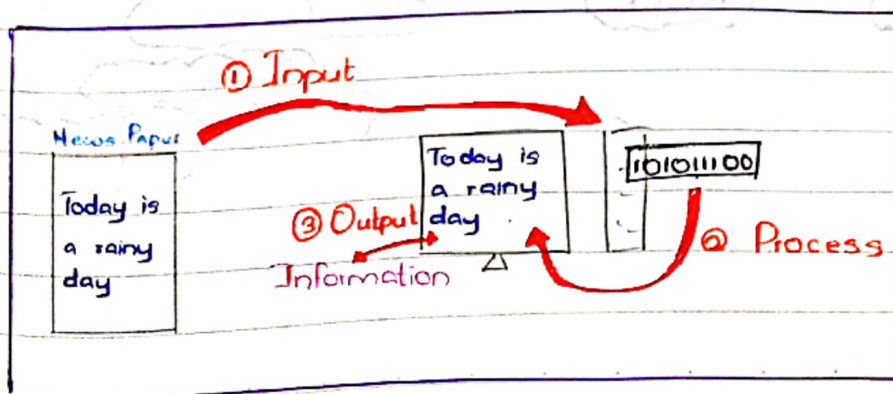 ① Input
News Paper
Today is
a rainy
day
Today is
a rainy
day
101011100
② Process
③ Output
Information